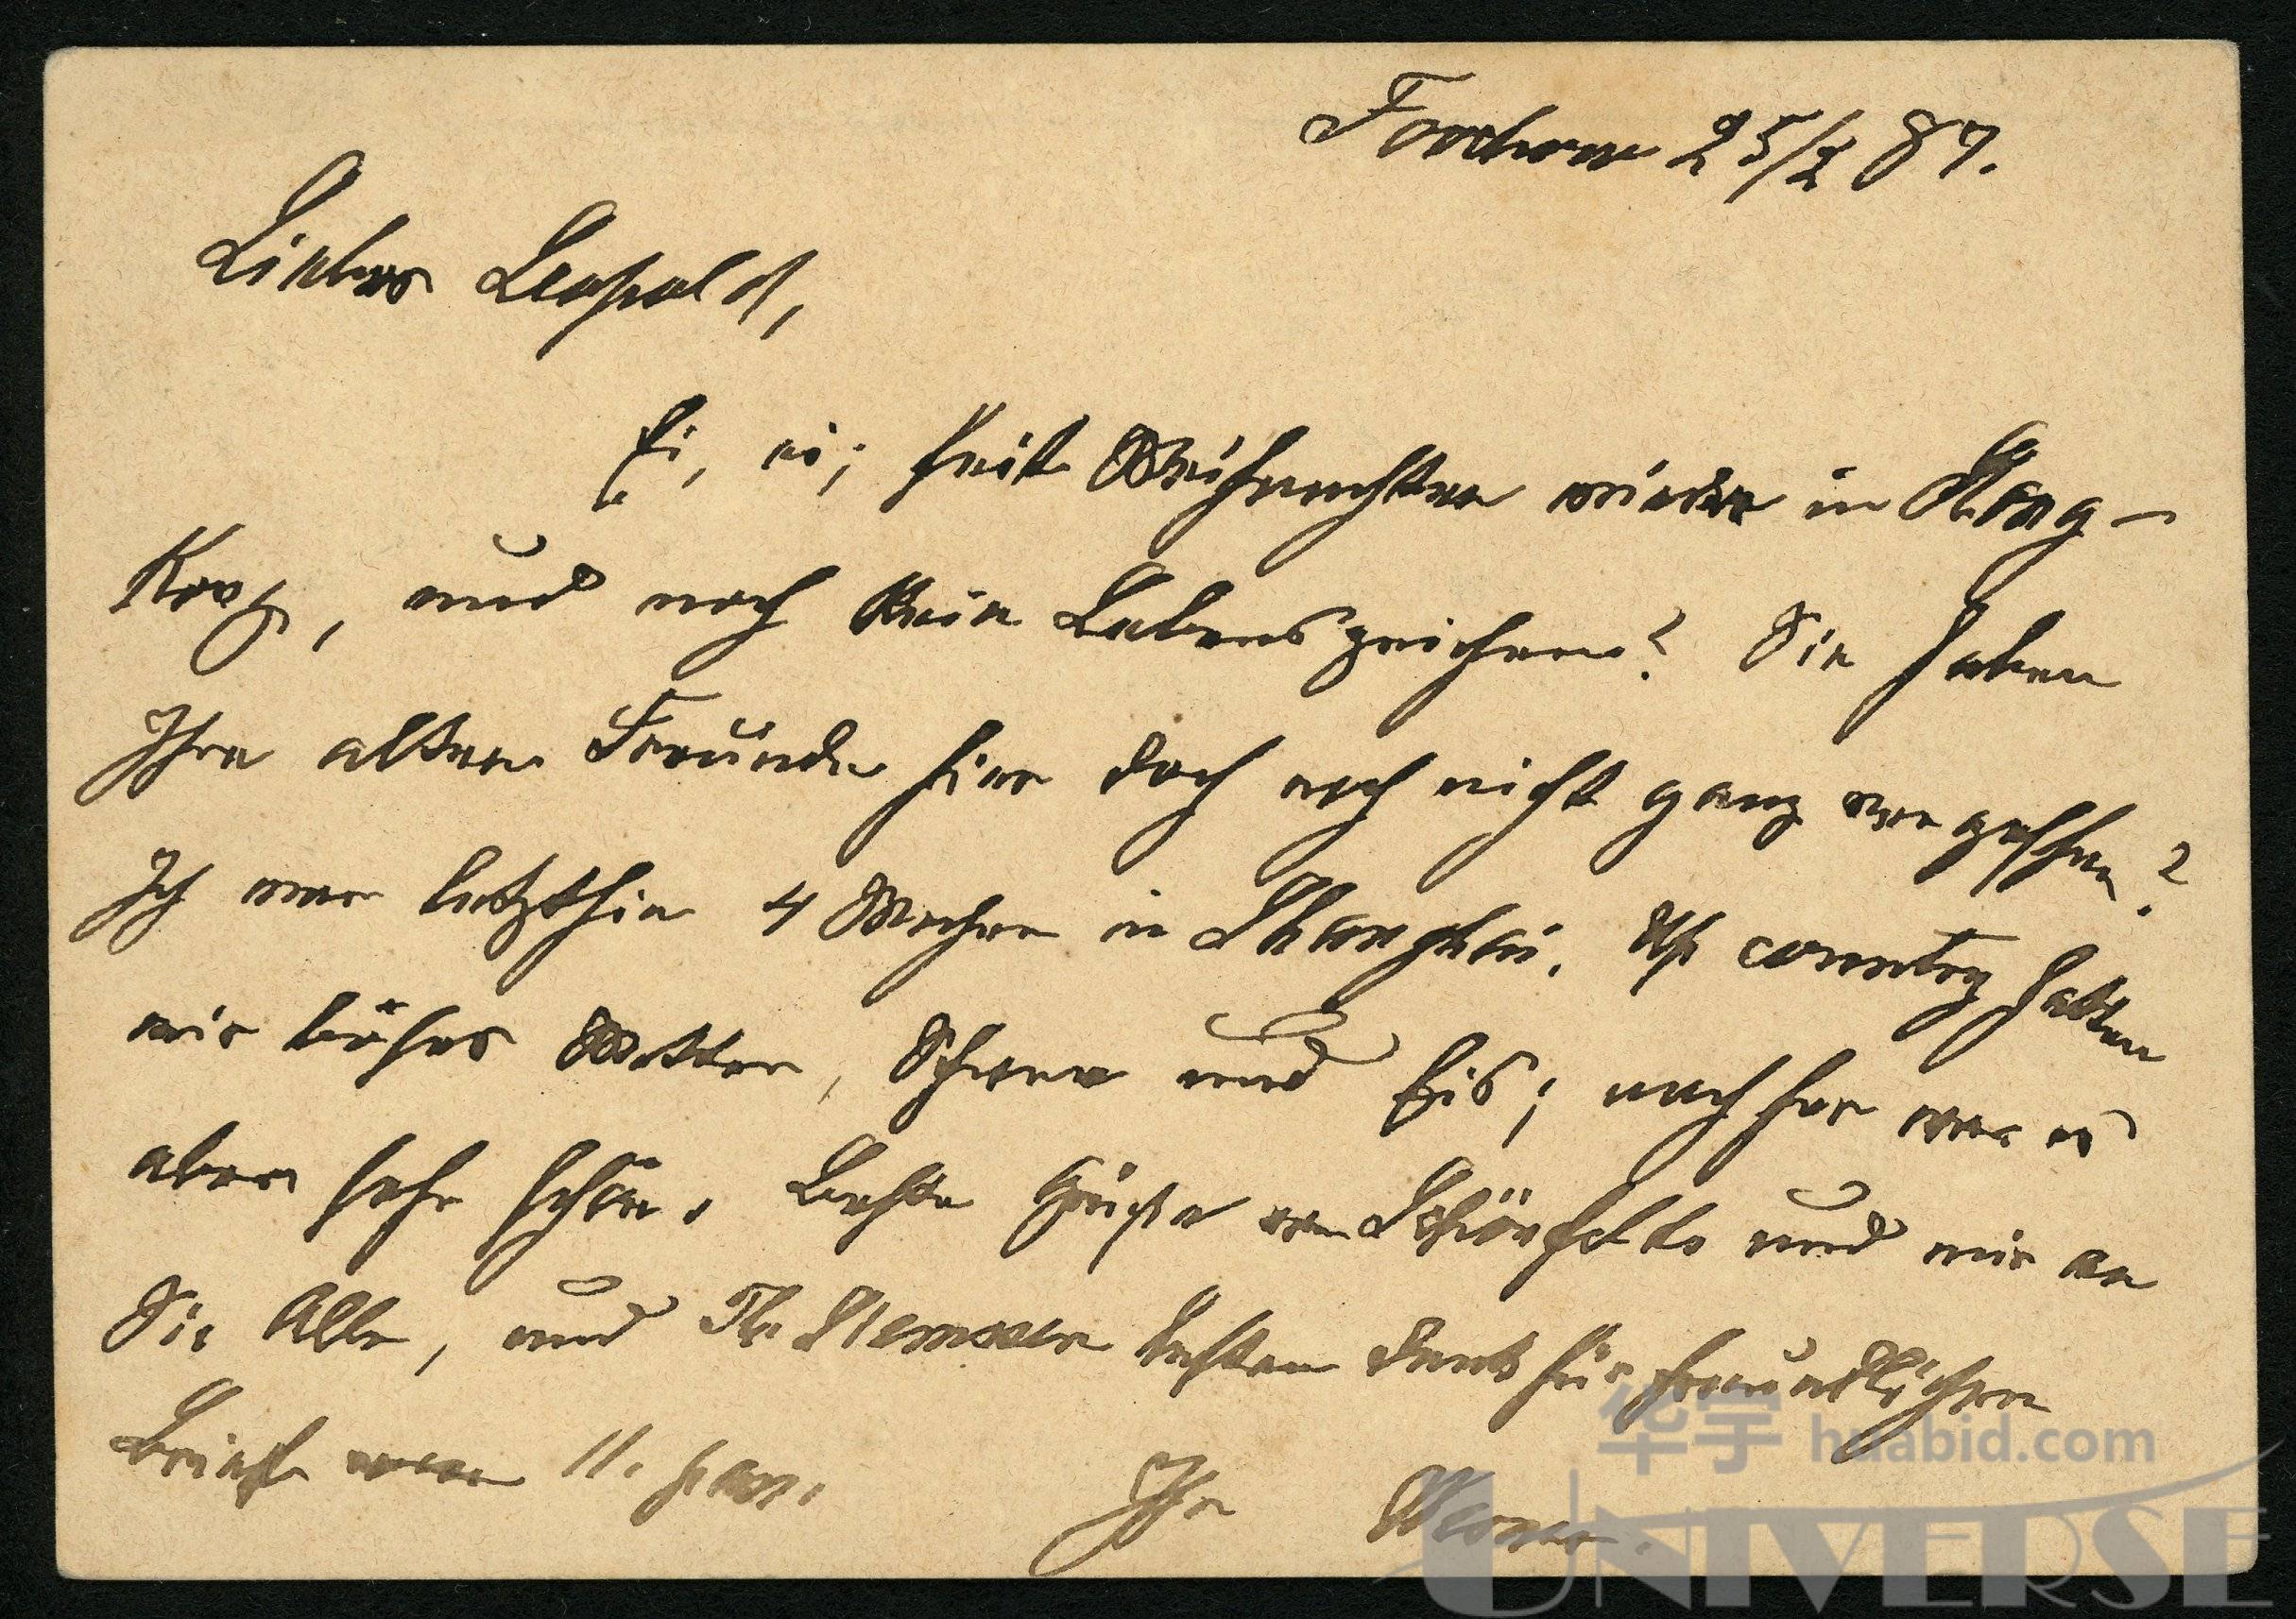 Foochow 25/2 87.
Lieber Leopold,
Ei, ei; seit Weihnachten wieder in Hong-
Kong, und noch kein Lebenszeichen? Sie haben
Ihre alten Freunde hier doch noch nicht ganz vergessen?
Ich war letzthin 4 Wochen in Shanghai. Up country hatten
wir böses Wetter, Schnee und Eis; nachher war es
aber sehr schön. Beste Grüße von Schönfeld und mir an
Sie Alle, und Th. Siemssen besten Dank für freundlichen
Brief vom 11. Jan.
Ihr Werner.
华宇 huabid.com
UNIVERSE